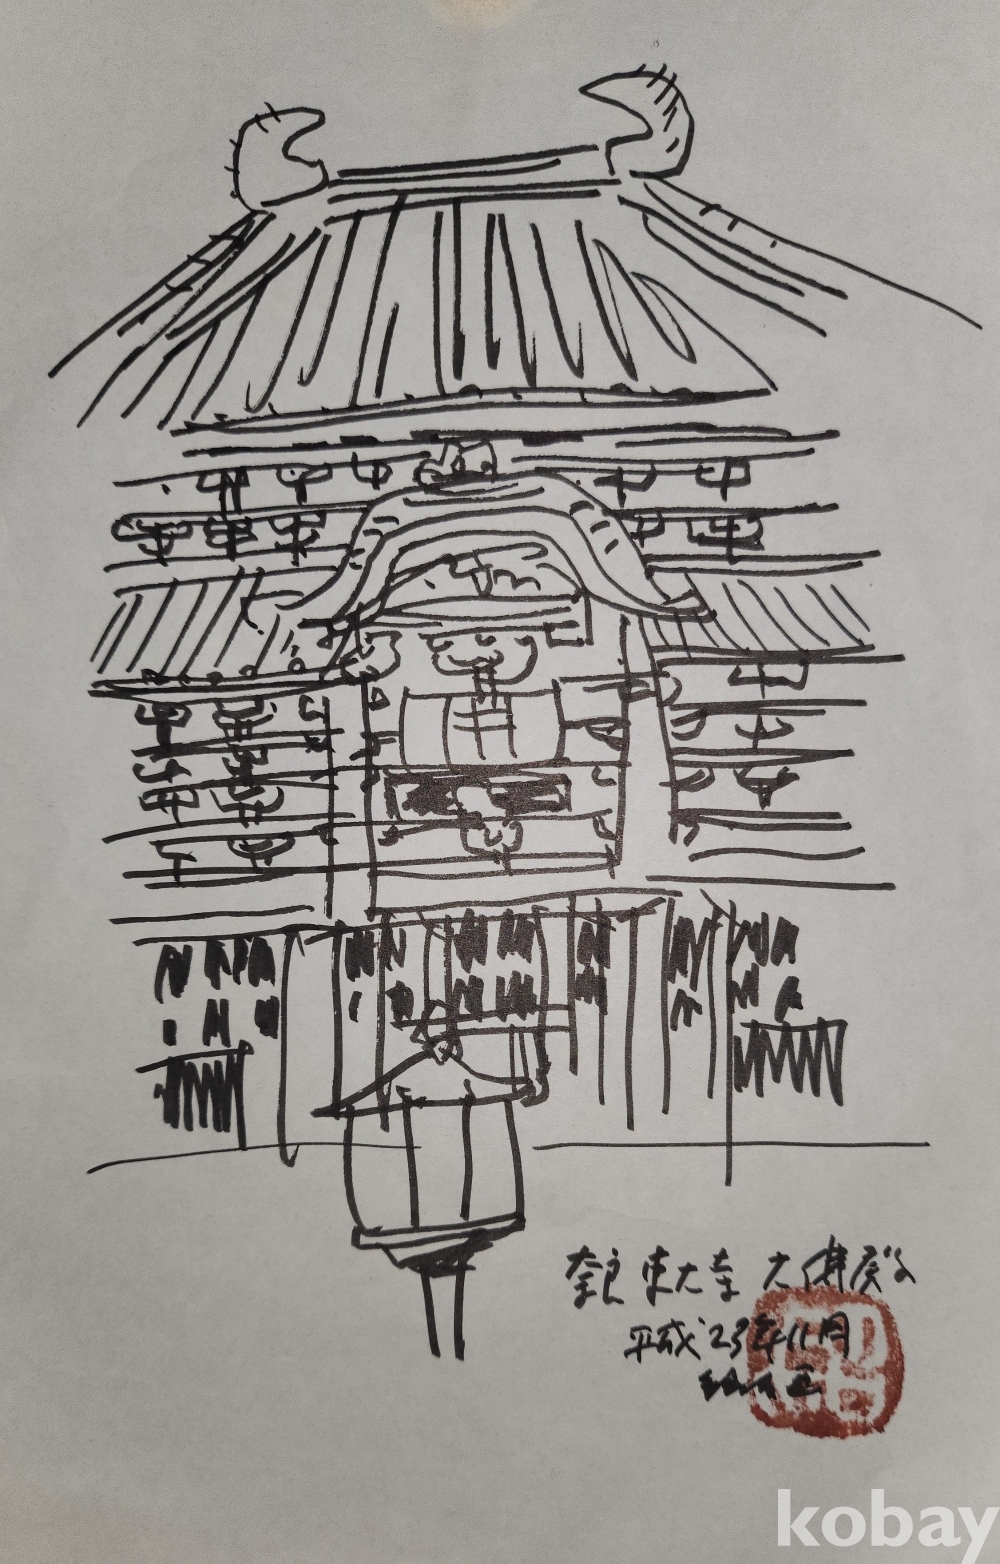 奈良 東大寺 大佛殿
平成23年11月
kobay